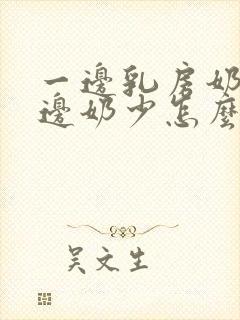 一邊乳房奶
邊奶少怎麼
吴文生